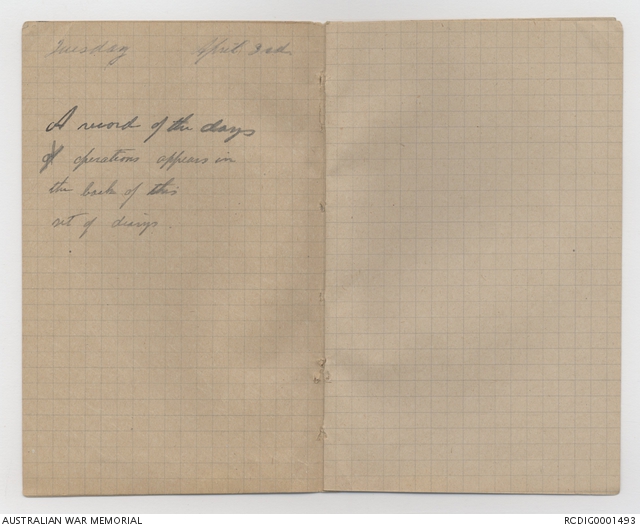 Tuesday April 3rd.
A record of the days
operations appears in
the back of this
set of diarys.
AUSTRALIAN WAR MEMORIAL
RCDIG0001493